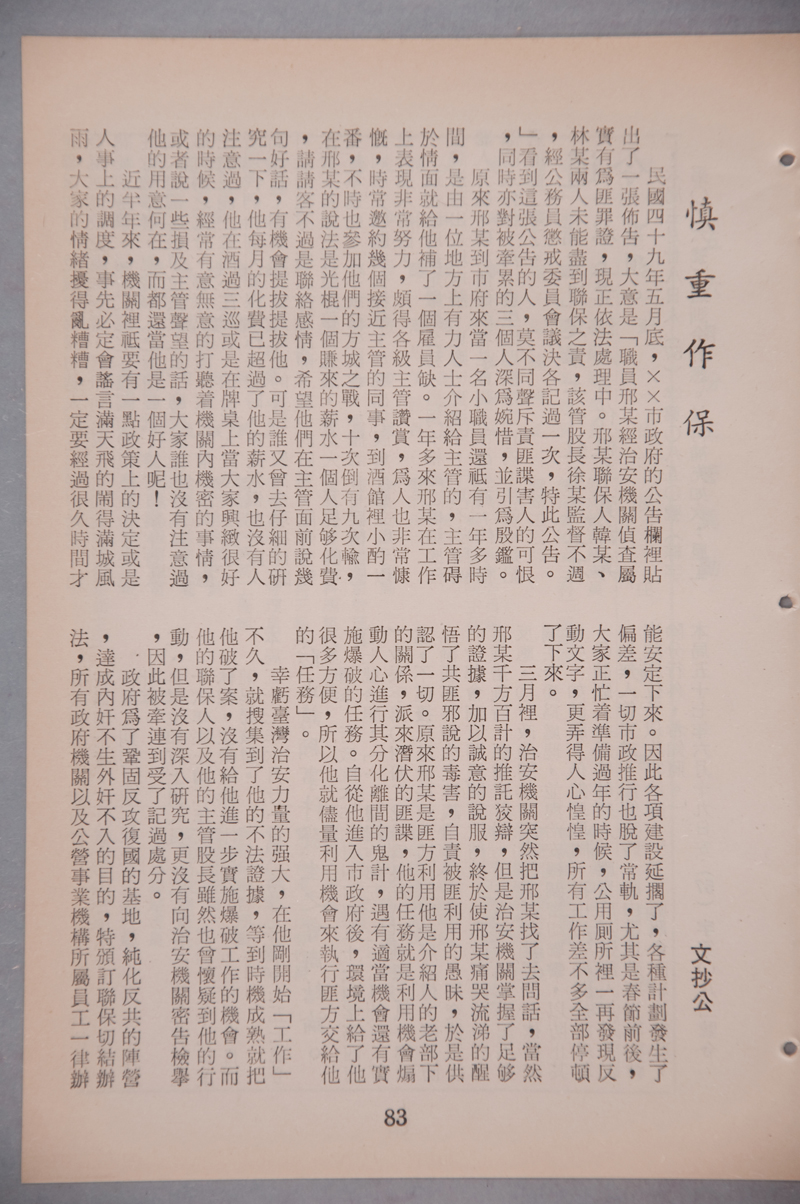 慎重作保
文抄公
　　民國四十九年五月底，××市政府的公告欄裡貼
出了一張佈告，大意是「職員邢某經治安機關偵査屬
實有爲匪罪證，現正依法處理中。邢某聯保人韓某、
林某兩人未能盡到聯保之責，該管股長徐某監督不週
，經公務員懲戒委員會議決各記過一次，特此公告。
」看到這張公告的人，莫不同聲斥責匪諜害人的可恨
，同時亦對被牽累的三個人深爲婉惜，並引爲殷鑑。
　　原來邢某到市府來當一名小職員還祗有一年多時
間，是由一位地方上有力人士介紹給主管的，主管碍
於情面就給他補了一個雇員缺。一年多來邢某在工作
上表現非常努力，頗得各級主管讚賞，爲人也非常慷
慨，時常邀約幾個接近主管的同事，到酒館裡小酌一
番，不時也參加他們的方城之戰，十次倒有九次輸，
在邢某的說法是光棍一個賺來的薪水一個人足够化費
，請請客不過是聯絡感情，希望他們在主管面前說幾
句好話，有機會提拔提拔他。可是誰又曾去仔細的硏
究一下，他每月的化費已超過了他的薪水，也沒有人
注意過，他在酒過三巡或是在牌桌上當大家興緻很好
的時候，經常有意無意的打聽着機關內機密的事情，
或者說一些損及主管聲望的話，大家誰也沒有注意過
他的用意何在，而都還當他是一個好人呢！
　　近半年來，機關裡祗要有一點政策上的決定或是
人事上的調度，事先必定會謠言滿天飛的鬧得滿城風
雨，大家的情緒擾得亂糟糟，一定要經過很久時間才
能安定下來。因此各項建設延擱了，各種計劃發生了
偏差，一切市政推行也脫了常軌，尤其是春節前後，
大家正忙着準備過年的時候，公用厠所裡一再發現反
動文字，更弄得人心惶惶，所有工作差不多全部停頓
了下來。
　　三月裡，治安機關突然把邢某找了去問話，當然
邢某千方百計的推託狡辯，但是治安機關掌握了足够
的證據，加以誠意的說服，終於使邢某痛哭流涕的醒
悟了共匪邪說的毒害，自責被匪利用的愚昧，於是供
認了一切。原來邢某是匪方利用他是介紹人的老部下
的關係，派來潛伏的匪諜，他的任務就是利用機會煽
動人心進行其分化離間的鬼計，遇有適當機會還有實
施爆破的任務。自從他進入市政府後，環境上給了他
很多方便，所以他就儘量利用機會來執行匪方交給他
的「任務」。
　　幸虧臺灣治安力量的强大，在他剛開始「工作」
不久，就搜集到了他的不法證據，等到時機成熟就把
他破了案，沒有給他進一步實施爆破工作的機會。而
他的聯保人以及他的主管股長雖然也曾懷疑到他的行
動，但是沒有深入硏究，更沒有向治安機關密告檢擧
，因此被牽連到受了記過處分。
　　政府爲了鞏固反攻復國的基地，純化反共的陣營
，達成內奸不生外奸不入的目的，特頒訂聯保切結辦
法，所有政府機關以及公營事業機構所屬員工一律辦
83